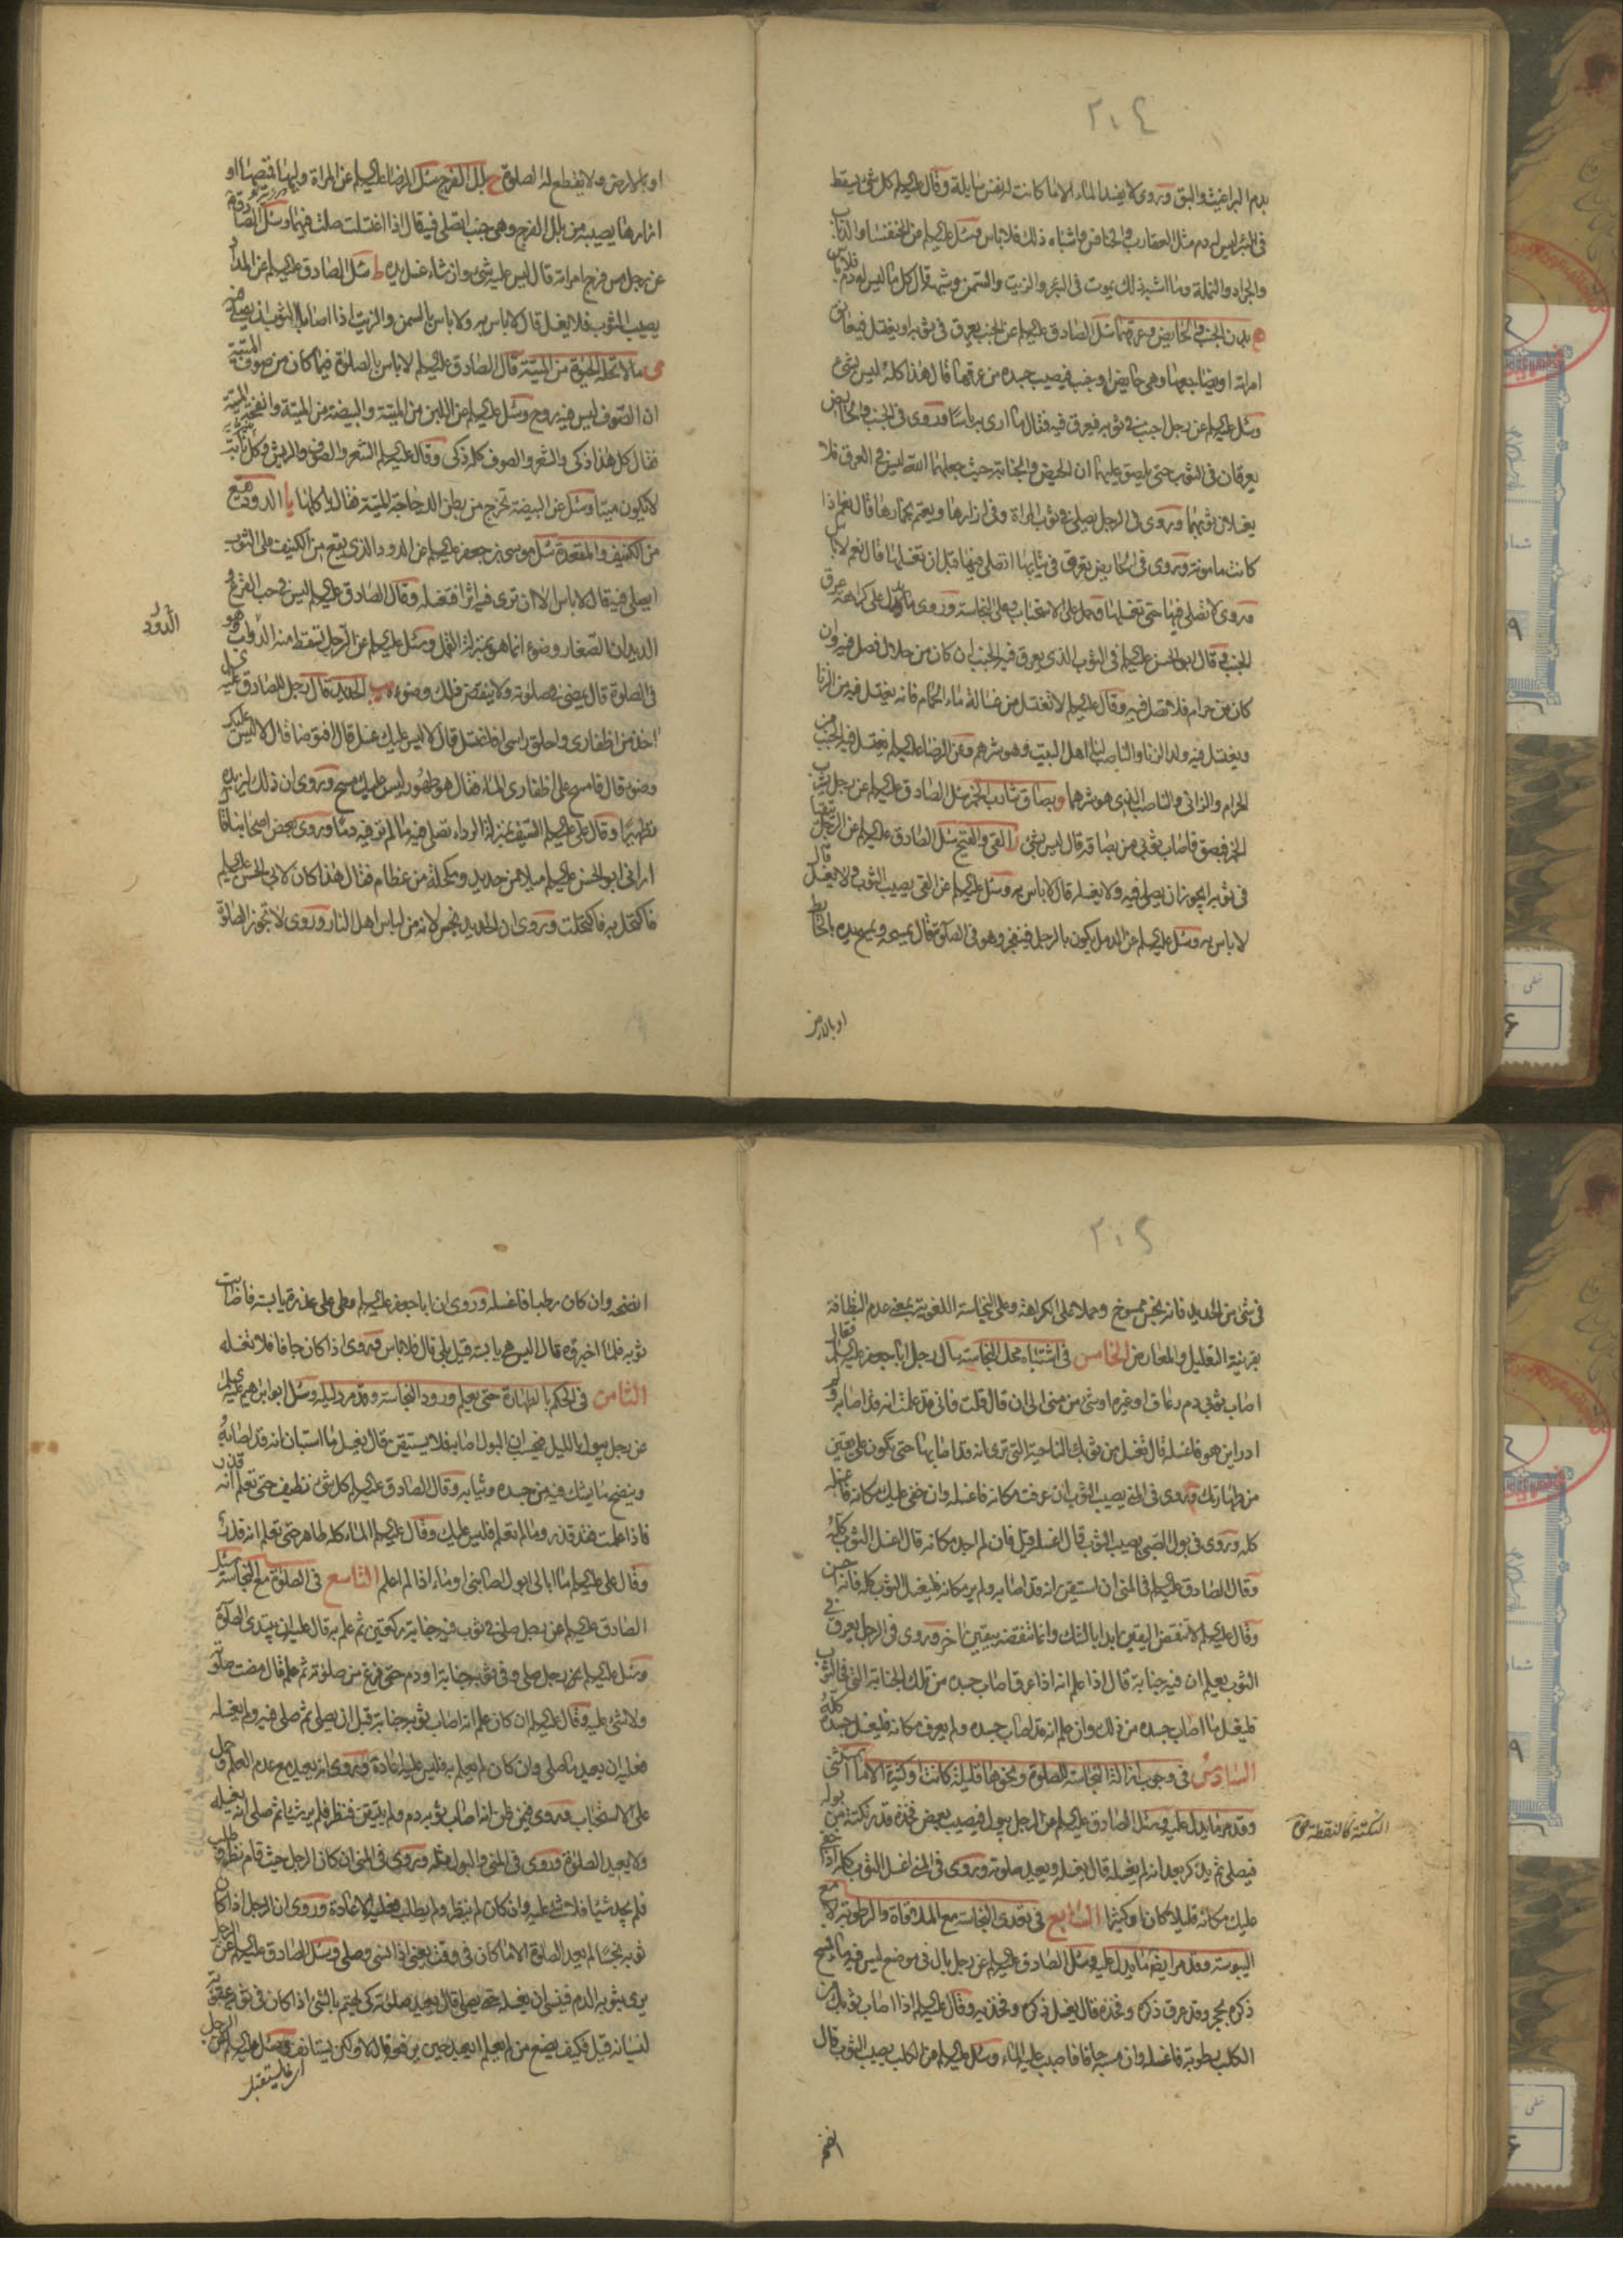 ٢٠٤
بدم البراغيث والبق وروى لا يفسد الماء الا ما كانت له نفس سايلة وقال عليه السلام كل شئ يسقط
فى البئر ليس له دم مثل العقارب والخنافس واشباه ذلك فلا باس وسئل عليه السلام عن الخنفساء والذباب
والجراد والنملة وما اشبه ذلك يموت فى البئر والزيت والسمن وشبهه قال كل ما ليس له دم فلا باس
بدن الجنب والحايض وعرقهما سئل الصادق عليه السلام عن الجنب يعرق فى ثوبه او يغتسل فيعانق
امراته او يضاجعها وهى حايض او جنب فيصيب جسده من عرقها قال هذا كله ليس بشئ
وسئل عليه السلام عن رجل اجنب فى ثوبه فيعرق فيه فقال ما ارى به باسا وروى فى الجنب والحايض
يعرقان فى الثوب حتى يلصق عليهما ان الحيض والجنابة حيث جعلهما الله ليس فى العرق فلا
يغسلان ثوبهما وروى فى الرجل يصلى فى ثوب المراة وفى ازارها ويعتم بخمارها قال نعم اذا
كانت مامونة وروى فى الحايض تعرق فى ثيابها اتصلى فيها قبل ان تغسلها قال نعم لا باس
وروى لا تصلى فيها حتى تغسلها وحمل على الاستحباب وعلى النجاسة وروى ما يدل على كراهة عرق
الجنب وقال ابو الحسن عليه السلام فى الثوب الذى يعرق فيه الجنب ان كان من حلال فصل فيه وان
كان من حرام فلا تصل فيه وقال عليه السلام لا تغتسل من غسالة ماء الحمام فانه يغتسل فيه من الزنا
ويغتسل فيه ولد الزنا والناصب لنا اهل البيت وهو شرهم وعن الرضا عليه السلام يغتسل فيه الجنب من
الحرام والزانى والناصب الذى هو شرهما و بصاق شارب الخمر سئل الصادق عليه السلام عن رجل يشرب
الخمر فبصق فاصاب ثوبى من بصاقه قال ليس بشئ ز القئ والقيح سئل الصادق عليه السلام عن الرجل يتقيا
فى ثوبه ايجوز ان يصلى فيه ولا يغسله قال لا باس به وسئل عليه السلام عن القئ يصيب الثوب ولا يغسل قال
لا باس به وسئل عليه السلام عن الدمل يكون بالرجل فينفجر وهو فى الصلوة قال يمسحه ويمسح يده بالحائط
او بالارض
او بالارض ولا يقطع له الصلوة ح بلل الفرج سئل الرضا عليه السلام عن المراة وليها قميصها او
ازارها يصيبه من بلل الفرج وهى جنب اتصلى فيه قال اذا اغتسلت صلت فيهما وسئل الصادق
عن رجل مس فرج امراته قال ليس عليه شئ وان شاء غسل يده ط سئل الصادق عليه السلام عن المداد
يصيب الثوب فلا يغسل قال لا باس به ولا باس بالسمن والزيت اذا اصابا الثوب ان يصلى فيه
ى ما لا تحله الحيوة من الميتة قال الصادق عليه السلام لا باس بالصلوة فيما كان من صوف الميتة
ان الصوف ليس فيه روح وسئل عليه السلام عن اللبن من الميتة والبيضة من الميتة وانفحة الميتة
فقال كل هذا ذكى والشعر والصوف كله ذكى وقال عليه السلام الشعر والصوف والريش وكل نابت
لا يكون ميتا وسئل عن البيضة تخرج من بطن الدجاجة الميتة فقال لا باس باكلها يا الدود يقع
من الكنيف والمقعدة سئل موسى بن جعفر عليه السلام عن الدود الذى يقع من الكنيف على الثوب
ايصلى فيه قال لا باس الا ان ترى فيه اثرا فتغسله وقال الصادق عليه السلام ليس فى حب القرع و
الديدان الصغار وضوء انما هو بمنزلة القمل وسئل عليه السلام عن الرجل تسقط منه الدواب وهو
الدود
فى الصلوة قال يمضى فى صلوته ولا ينقض ذلك وضوءه يب الحديد قال رجل للصادق عليه السلام
اخذ من اظفارى واحلق راسى افاغتسل قال لا ليس عليك غسل قال افتوضا قال لا ليس عليك
وضوء قال فامسح على اظفارى الماء فقال هو طهور ليس عليك مسح وروى ان ذلك ليزيده
تطهيرا وقال على عليه السلام السيف بمنزلة الرداء تصلى فيه ما لم تر فيه دما وروى بعض اصحابنا قال
ارانى ابو الحسن عليه السلام ميلا من حديد ومكحلة من عظام فقال هذا كان لابى الحسن عليه السلام
فاكتحل به فاكتحلت وروى ان الحديد نجس لانه من لباس اهل النار وروى لا تجوز الصلوة
٢٠٥
فى شئ من الحديد فانه نجس ممسوخ وحملا على الكراهة وعلى النجاسة اللغوية بمعنى عدم النظافة
بقرينة التعليل والمعارض الخامس فى اشتباه محل النجاسة سال رجل ابا جعفر عليه السلام فقال
اصاب ثوبى دم رعاف او غيره او شئ من منى الى ان قال قلت فانى قد علمت انه قد اصابه ولم
ادر اين هو فاغسله قال تغسل من ثوبك الناحية التى ترى انه قد اصابها حتى تكون على يقين
من طهارتك وروى فى المنى يصيب الثوب ان عرفت مكانه فاغسله وان خفى عليك مكانه فاغسله
كله وروى فى بول الصبى يصيب الثوب قال اغسله قيل فان لم اجد مكانه قال اغسل الثوب كله
وقال الصادق عليه السلام فى المنى ان استيقن انه قد اصابه ولم ير مكانه فليغسل الثوب كله فانه احسن
وقال عليه السلام لا تنقض اليقين ابدا بالشك وانما تنقضه بيقين اخر وروى فى الرجل يعرق فى
الثوب يعلم ان فيه جنابة قال اذا علم انه اذا عرق اصاب جسده من تلك الجنابة التى فى الثوب
فليغسل ما اصاب جسده من ذلك وان علم انه قد اصاب جسده ولم يعرف مكانه فليغسل جسده كله
السادس فى وجوب ازالة النجاسة للصلوة ونحوها قليلة كانت او كثيرة الا ما استثنى
وقد مر ما يدل عليه وسئل الصادق عليه السلام عن الرجل يبول فيصيب بعض فخذه قدر نكتة من بوله
النكتة كالنقطة
فيصلى ثم يذكر بعد انه لم يغسله قال يغسله ويعيد صلوته وروى فى المنى اغسل الثوب كله اذا خفى
عليك مكانه قليلا كان او كثيرا السابع فى تعدى النجاسة مع الملاقاة والرطوبة لا مع
اليبوسة وقد مر ايضا ما يدل عليه وسئل الصادق عليه السلام عن رجل بال فى موضع ليس فيه ماء فمسح
ذكره بحجر وقد عرق ذكره وفخذه قال يغسل ذكره وفخذيه وقال عليه السلام اذا اصاب ثوبك من
الكلب رطوبة فاغسله وان مسه جافا فاصبب عليه الماء وسئل عليه السلام عن الكلب يصيب الثوب قال
انضحه
انضحه وان كان رطبا فاغسله وروى ان ابا جعفر عليه السلام وطى على عذرة يابسة فاصابت
ثوبه فلما اخبروه قال اليس هى يابسة قيل بلى قال فلا باس وروى اذا كان جافا فلا تغسله
الثامن فى الحكم بالطهارة حتى يعلم ورود النجاسة وقد مر دليله وسئل ابو ابراهيم عليه السلام
عن رجل يبول بالليل فيحسب ان البول اصابه فلا يستيقن قال يغسل ما استبان انه قد اصابه
وينضح ما يشك فيه من جسده وثيابه وقال الصادق عليه السلام كل شئ نظيف حتى تعلم انه قذر
فاذا علمت فقد قذر وما لم تعلم فليس عليك وقال عليه السلام الماء كله طاهر حتى تعلم انه قذر
وقال على عليه السلام ما ابالى ابول اصابنى او ماء اذا لم اعلم التاسع فى الصلوة مع النجاسة سئل
الصادق عليه السلام عن رجل صلى فى ثوب فيه جنابة ركعتين ثم علم به قال عليه ان يبتدى الصلوة
وسئل عليه السلام عن رجل صلى وفى ثوبه جنابة او دم حتى فرغ من صلوته ثم علم قال مضت صلوته
ولا شئ عليه وقال عليه السلام ان كان علم انه اصاب ثوبه جنابة قبل ان يصلى ثم صلى فيه ولم يغسله
فعليه ان يعيد ما صلى وان كان لم يعلم به فليس عليه اعادة وروى انه يعيد مع عدم العلم وحمل
على الاستحباب وروى فيمن ظن انه اصاب ثوبه دم ولم يتيقن فنظر فلم ير شيئا ثم صلى انه يغسله
ولا يعيد الصلوة وروى فى المنى والبول مثله وروى فى المنى ان كان الرجل حيث قام نظر وطلب
فلم يجد شيئا فلا شئ عليه وان كان لم ينظر ولم يطلب فعليه الاعادة وروى ان الرجل اذا كان
ثوبه نجسا لم يعد الصلوة الا ما كان فى وقت يعنى اذا نسى وصلى وسئل الصادق عليه السلام عن الرجل
يرى بثوبه الدم فينسى ان يغسله حتى يصلى قال يعيد صلوته كى يهتم بالشئ اذا كان فى ثوبه عقوبة
لنسيانه قيل فكيف يصنع من لم يعلم ايعيد حين يرفعه قال لا ولكن يستانف وسئل عليه السلام عن الرجل
اى فليستقبل